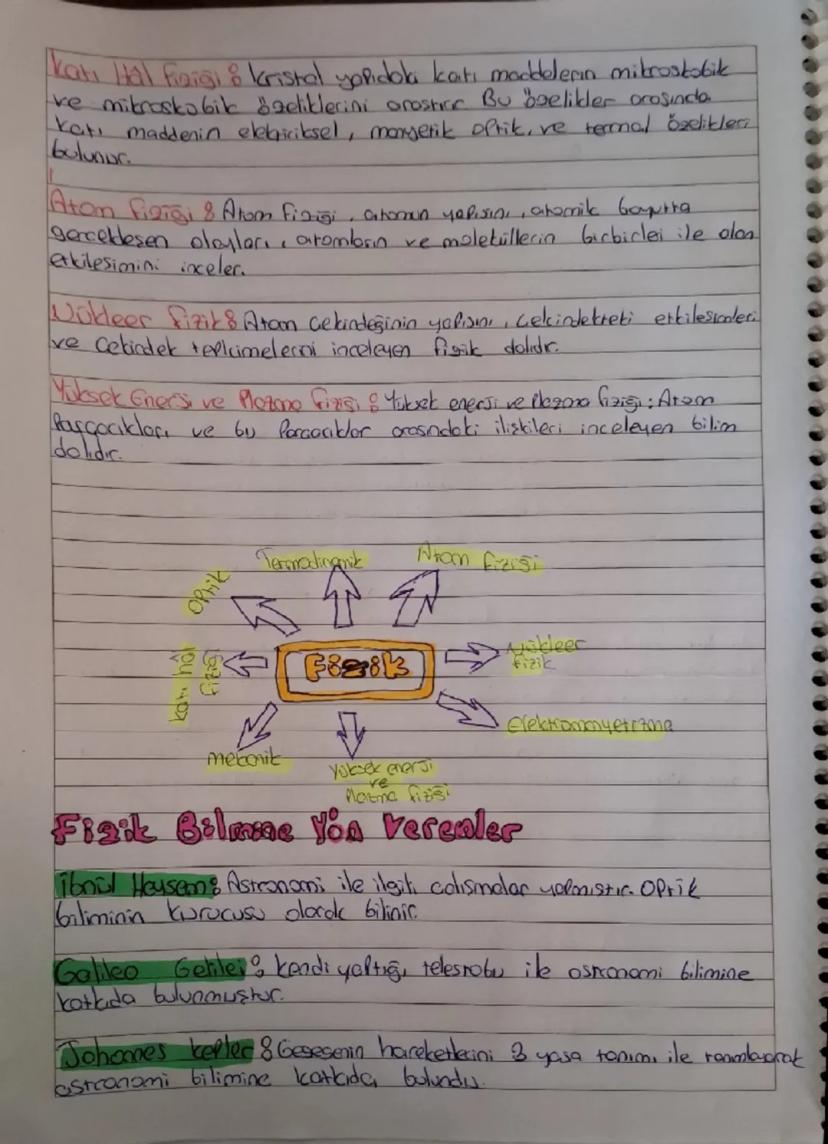 Katı Hâl Fiziği : Kristal yapıdaki katı maddelerin mikroskobik
ve mikroskobik özeliklerini araştırır Bu özelikler arasında
katı maddenin elektriksel, manyetik optik, ve termal özelikleri
bulunur.
Atom Fiziği : Atom Fiziği, atomun yapısını, atomik boyutta
gerçekleşen olayları, atomların ve moleküllerin birbirleri ile olan
etkileşimini inceler.
Nükleer Fizik : Atom çekirdeğinin yapısını, çekirdekteki etkileşimleri
ve çekirdek tepkimelerini inceleyen fizik dalıdır.
Yüksek Enerji ve Plazma Fiziği : Yüksek enerji ve Plazma fiziği : Atom
Parçacıkları ve bu Parçacıklar arasındaki ilişkileri inceleyen bilim
dalıdır.
Termodinamik
Atom fiziği
Optik
Fizik
Nükleer
fizik
katı hâl
fiziği
Elektromanyetizma
mekanik
Yüksek enerji
ve
Plazma fiziği
Fizik Bilimine Yön Verenler
İbnül Heysem : Astronomi ile ilgili çalışmalar yapmıştır. Optik
biliminin kurucusu olarak bilinir.
Galileo Galilei : kendi yaptığı teleskobu ile astronomi bilimine
katkıda bulunmuştur.
Johannes kepler : Gezegenin hareketlerini 3 yasa tanımı ile tanımlayarak
astronomi bilimine katkıda bulundu.